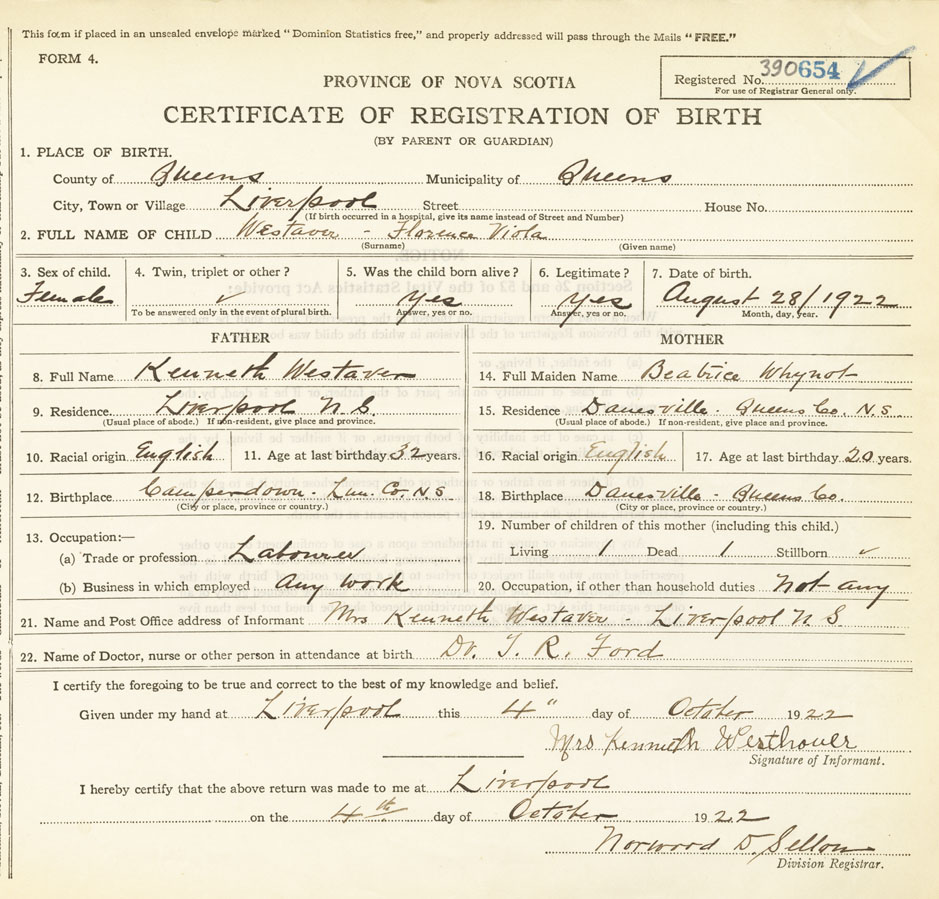 This form if placed in an unsealed envelope marked "Dominion Statistics free," and properly addressed will pass through the Mails "FREE."
FORM 4.
PROVINCE OF NOVA SCOTIA
Registered No. 390654
For use of Registrar General only.
CERTIFICATE OF REGISTRATION OF BIRTH
(BY PARENT OR GUARDIAN)
1. PLACE OF BIRTH.
County of Queens Municipality of Queens
City, Town or Village Liverpool Street House No.
(If birth occurred in a hospital, give its name instead of Street and Number)
2. FULL NAME OF CHILD Westaver - Florence Viola
(Surname) (Given name)
3. Sex of child. 4. Twin, triplet or other? 5. Was the child born alive? 6. Legitimate? 7. Date of birth.
Female ✓ Yes Yes August 28/1922
To be answered only in the event of plural birth. Answer, yes or no. Answer, yes or no. Month, day, year.
FATHER MOTHER
8. Full Name Kenneth Westaver 14. Full Maiden Name Beatrice Whynot
9. Residence Liverpool N.S. 15. Residence Danesville - Queens Co. N.S.
(Usual place of abode.) If non-resident, give place and province. (Usual place of abode.) If non-resident, give place and province.
10. Racial origin English 11. Age at last birthday 32 years. 16. Racial origin English 17. Age at last birthday 20 years.
12. Birthplace Camperdown - Lun. Co. N.S 18. Birthplace Danesville - Queens Co.
(City or place, province or country.) (City or place, province or country.)
19. Number of children of this mother (including this child.)
13. Occupation:—
(a) Trade or profession Labourer Living 1 Dead 1 Stillborn ✓
(b) Business in which employed Any work 20. Occupation, if other than household duties Not any
21. Name and Post Office address of Informant Mrs Kenneth Westaver - Liverpool N S
22. Name of Doctor, nurse or other person in attendance at birth Dr. J. R. Ford
I certify the foregoing to be true and correct to the best of my knowledge and belief.
Given under my hand at Liverpool this 4" day of October 1922
Mrs Kenneth Westhover
Signature of Informant.
I hereby certify that the above return was made to me at Liverpool
on the 4th day of October 1922
Norwood D. Sellon
Division Registrar.